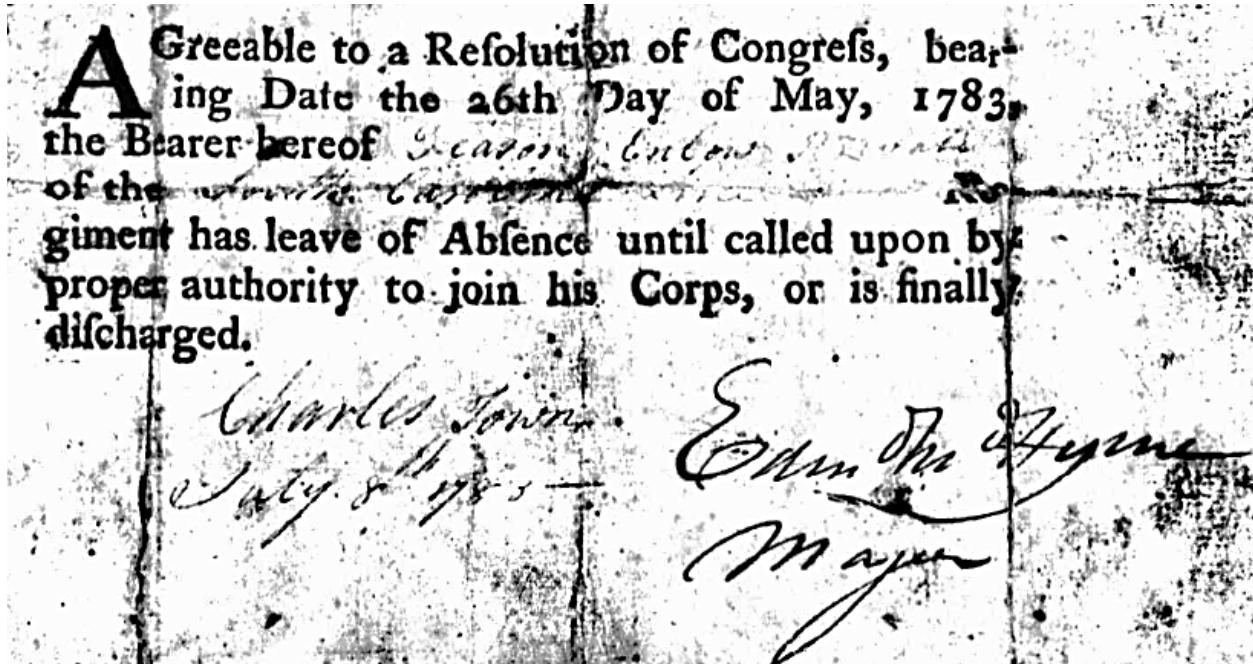 AGreeable to a Reſolution of Congreſs, bear-
ing Date the 26th Day of May, 1783,
the Bearer hereof Enlow Private
of the South Carolina Re-
giment has leave of Abſence until called upon by
proper authority to join his Corps, or is finally
diſcharged.
Charles Town
July 8th 1783
Edm Hyrne
Major